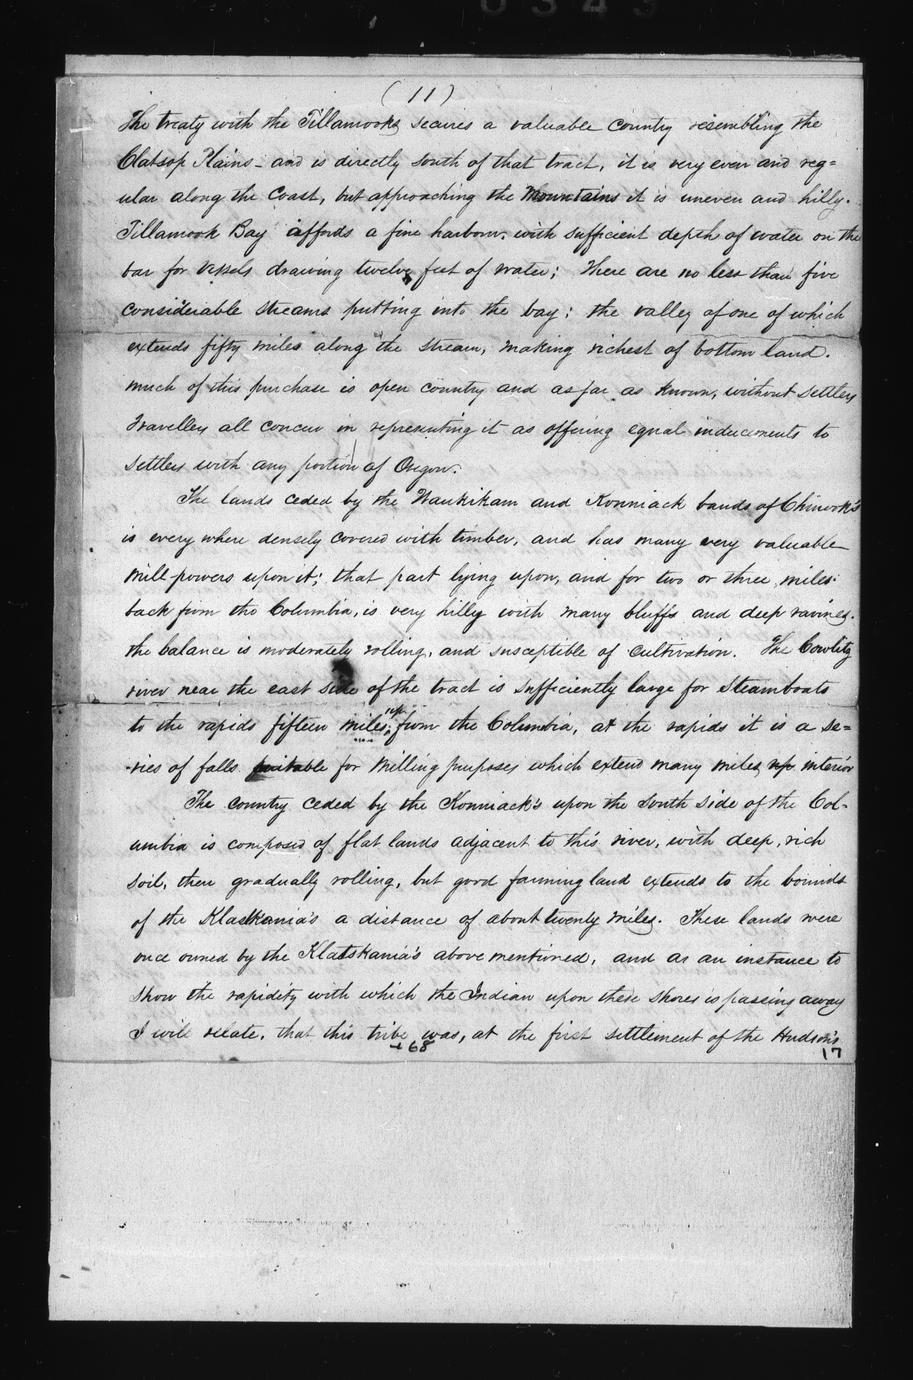 (11)
The treaty with the Tillamooks secures a valuable country resembling the
Clatsop Plains - and is directly south of that tract, it is very even and reg=
ular along the Coast, but approaching the Mountains it is uneven and hilly.
Tillamook Bay affords a fine harbour, with sufficient depth of water on the
bar for vessels drawing twelve feet of water; There are no less than five
considerable streams putting into the bay; the valley of one of which
extends fifty miles along the stream, making richest of bottom land.
Much of this purchase is open country and as far as known, without settlers
Travellers all concur in representing it as offering equal inducements to
settlers with any portion of Oregon.
The lands ceded by the Waukikam and Konniack bands of Chinook's
is every where densely covered with timber, and has many very valuable
Mill-powers upon it; that part lying upon, and for two or three miles
back from the Columbia, is very hilly with many bluffs and deep ravines.
the balance is moderately rolling, and susceptible of cultivation. The Cowlitz
river near the east side of the tract is sufficiently large for Steamboats
to the rapids fifteen miles up from the Columbia, at the rapids it is a se=
ries of falls suitable for Milling purposes which extend many miles up interior
The country ceded by the Konniack's upon the South side of the Col-
umbia is composed of flat lands adjacent to this river, with deep, rich
soil, then gradually rolling, but good farming land extends to the bounds
of the Klaskania's a distance of about twenty miles. These lands were
once owned by the Klatskania's above mentioned, and as an instance to
show the rapidity with which the Indian upon these shores is passing away
I will relate, that this tribe was, at the first settlement of the Hudson's
68
17